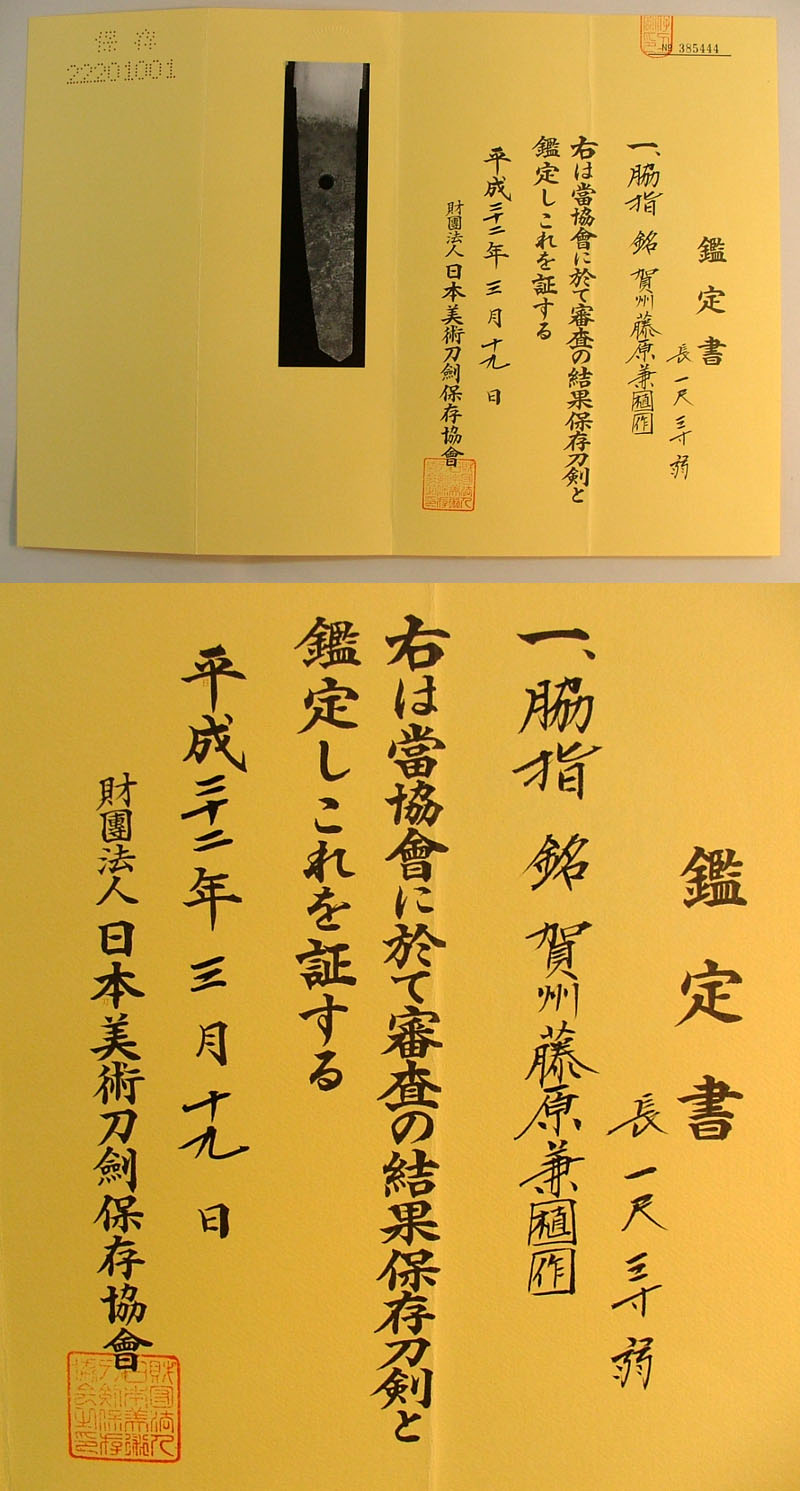 保存
22201001
№ 385444
鑑定書
一、脇指 銘 賀州藤原兼植作
長 一尺三寸弱
右は當協會に於て審査の結果保存刀剣と
鑑定しこれを証する
平成二十二年 三月 十九日
財團法人 日本美術刀劍保存協會
鑑定書
長 一尺三寸弱
一、脇指 銘 賀州藤原兼植作
右は當協會に於て審査の結果保存刀剣と
鑑定しこれを証する
平成二十二年 三月 十九日
財團法人 日本美術刀劍保存協會